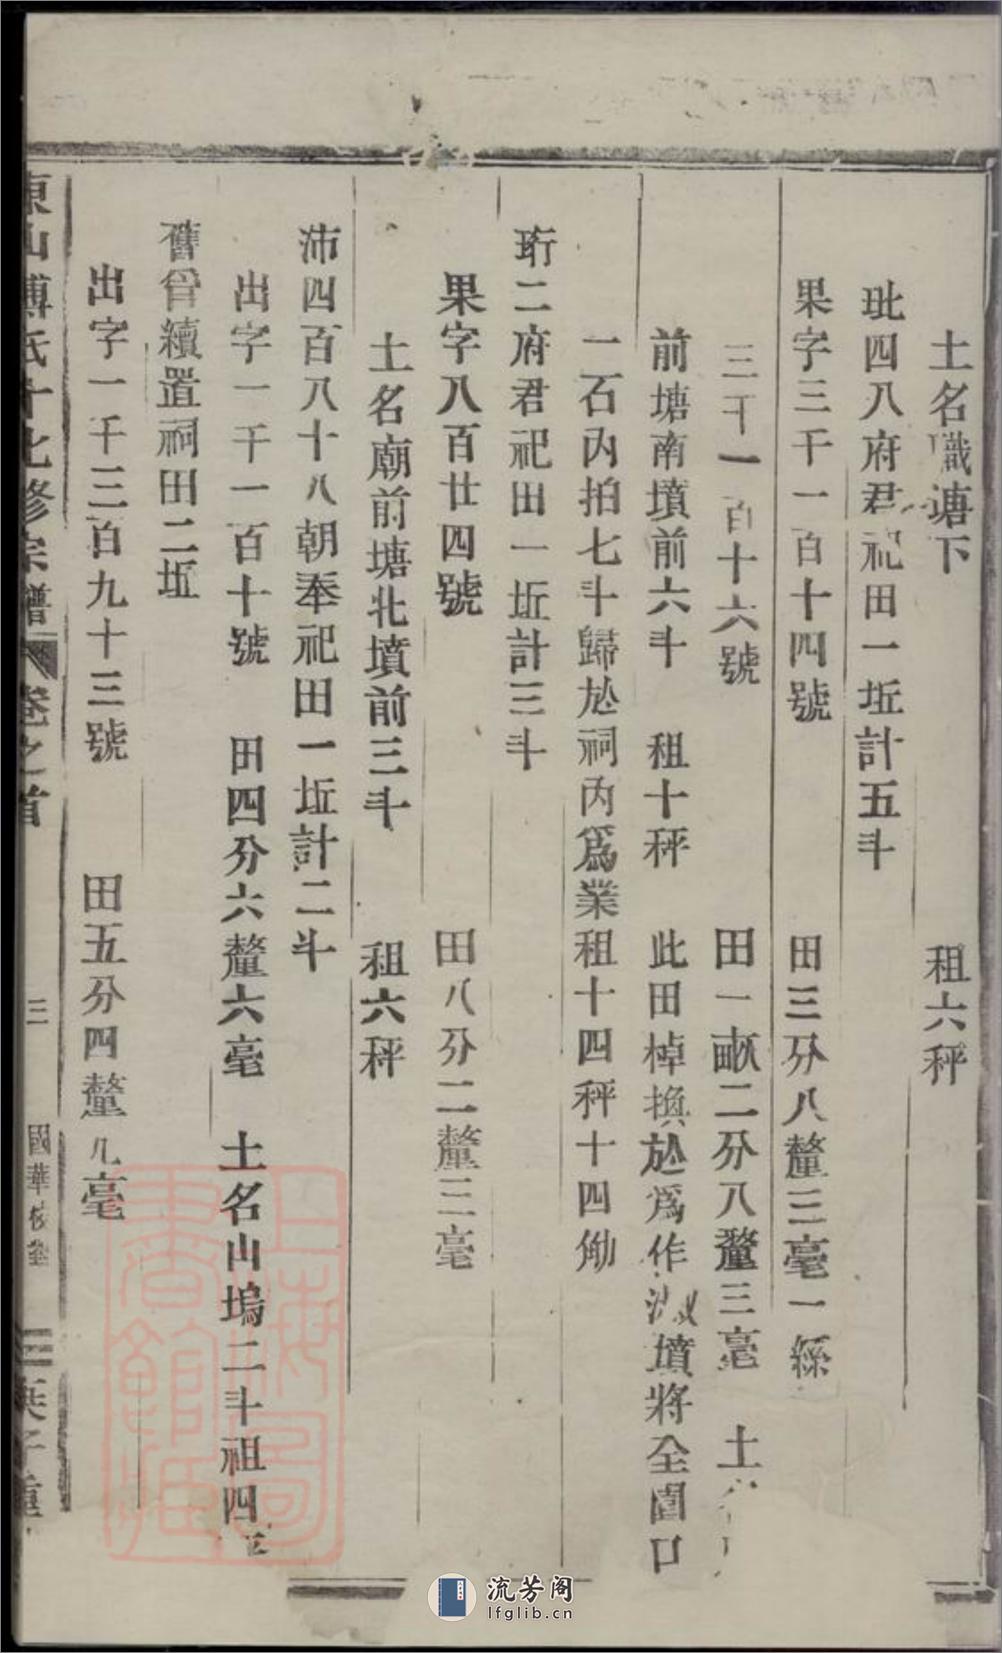 土名職塘下 租六秤
玭四八府君祀田一坵計五斗
果字三千一百十四號 田三分八釐三毫一絲
三千一百十六號 田一畝二分八釐三毫 土
前塘南墳前六斗 租十秤 此田棹換於爲作 墳將全園口
一石內拍七斗歸於祠內爲業租十四秤十四勆
珩二府君祀田一坵計三斗
果字八百廿四號 田八分二釐三毫
土名廟前塘北墳前三斗 租六秤
沛四百八十八朝奉祀田一坵計二斗
出字一千一百十號 田四分六釐六毫 土名山塢二斗祖四
舊管續置祠田二坵
出字一千三百九十三號 田五分四釐九毫
東山傅氏十七修宗譜 卷之首 三 國華校
上海圖書館藏
流芳阁
lfglib.cn